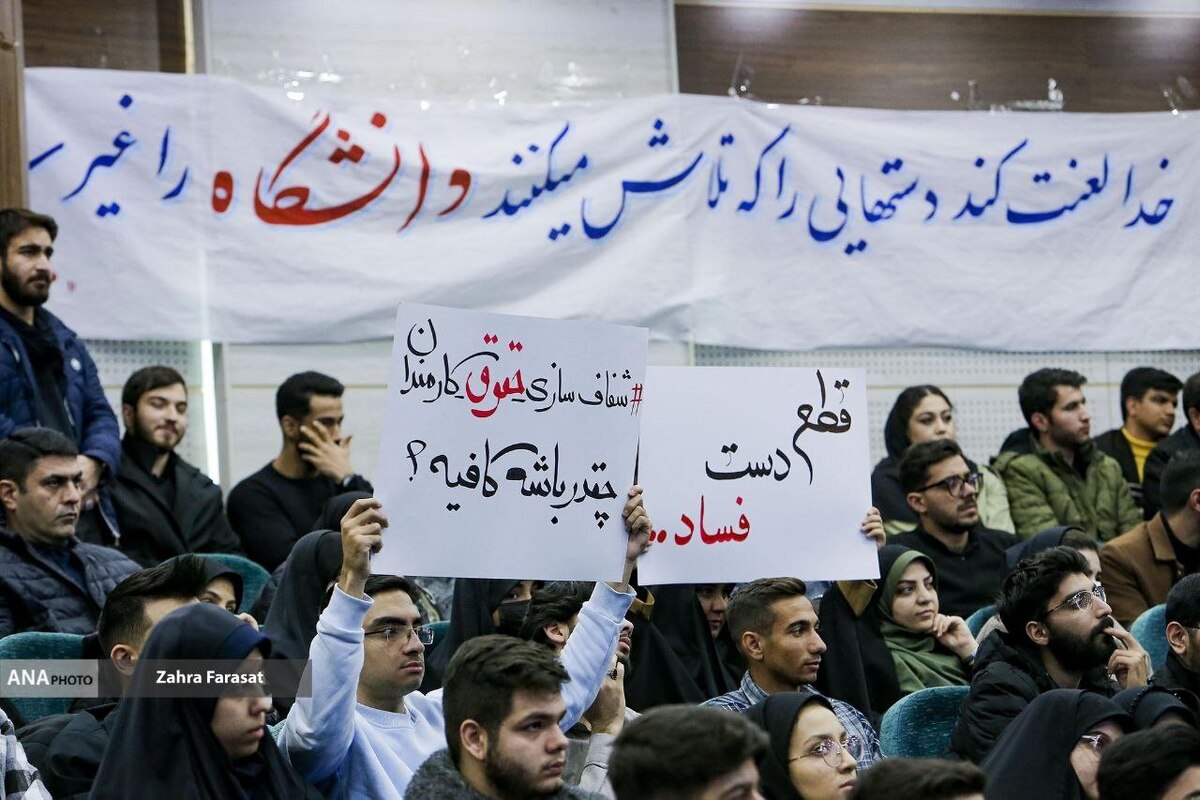 خدا لعنت کند دستهایی را که تلاش میکنند دانشگاه را غیر
#شفاف سازی حقوق کارمندان
چقدر باشه کافیه ؟
قطع
دست
فساد..
ANA PHOTO
Zahra Farasat